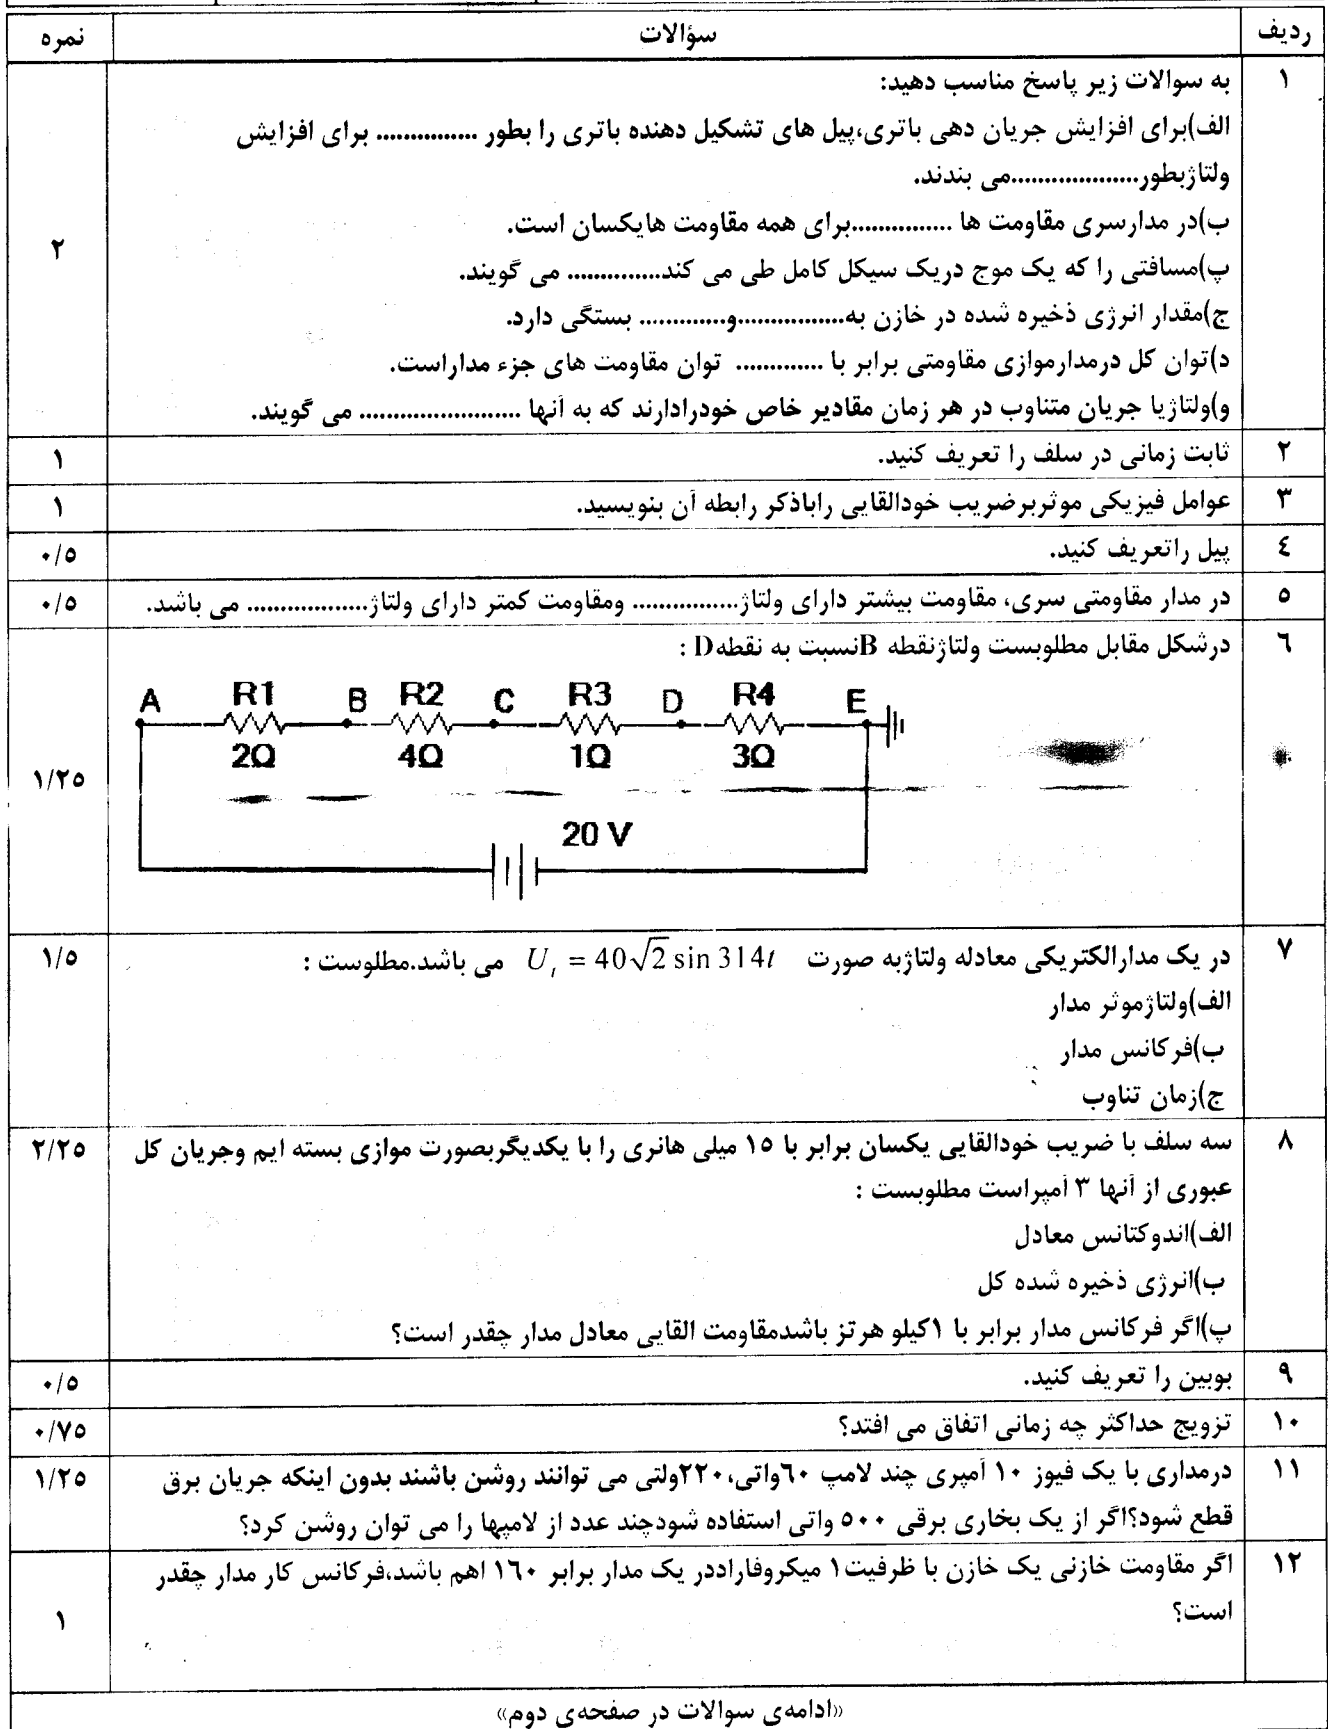 ردیف سؤالات نمره
۱ به سوالات زیر پاسخ مناسب دهید:
الف)برای افزایش جریان دهی باتری،پیل های تشکیل دهنده باتری را بطور ............... برای افزایش
ولتاژبطور...................می بندند.
ب)در مدارسری مقاومت ها ...............برای همه مقاومت هایکسان است.
پ)مسافتی را که یک موج دریک سیکل کامل طی می کند............... می گویند.
ج)مقدار انرژی ذخیره شده در خازن به................و............. بستگی دارد.
د)توان کل درمدارموازی مقاومتی برابر با ............. توان مقاومت های جزء مداراست.
و)ولتاژیا جریان متناوب در هر زمان مقادیر خاص خودرادارند که به آنها ........................ می گویند.
۲
۲ ثابت زمانی در سلف را تعریف کنید. ۱
۳ عوامل فیزیکی موثربرضریب خودالقایی راباذکر رابطه آن بنویسید. ۱
٤ پیل راتعریف کنید. ۰/٥
٥ در مدار مقاومتی سری، مقاومت بیشتر دارای ولتاژ................ ومقاومت کمتر دارای ولتاژ.................. می باشد. ۰/٥
٦ درشکل مقابل مطلوبست ولتاژنقطه Bنسبت به نقطهD :
A R1 B R2 C R3 D R4 E
2Ω 4Ω 1Ω 3Ω
۱/۲٥
20 V
۷ در یک مدارالکتریکی معادله ولتاژبه صورت U_t = 40√2 sin 314t می باشد.مطلوست : ۱/٥
الف)ولتاژموثر مدار
ب)فرکانس مدار
ج)زمان تناوب
۸ سه سلف با ضریب خودالقایی یکسان برابر با ۱٥ میلی هانری را با یکدیگربصورت موازی بسته ایم وجریان کل ۲/۲٥
عبوری از آنها ۳ آمپراست مطلوبست :
الف)اندوکتانس معادل
ب)انرژی ذخیره شده کل
پ)اگر فرکانس مدار برابر با ۱کیلو هرتز باشدمقاومت القایی معادل مدار چقدر است؟
۹ بوبین را تعریف کنید. ۰/٥
۱۰ تزویج حداکثر چه زمانی اتفاق می افتد؟ ۰/۷٥
۱۱ درمداری با یک فیوز ۱۰ آمپری چند لامپ ٦۰واتی،۲۲۰ولتی می توانند روشن باشند بدون اینکه جریان برق ۱/۲٥
قطع شود؟اگر از یک بخاری برقی ٥۰۰ واتی استفاده شودچند عدد از لامپها را می توان روشن کرد؟
۱۲ اگر مقاومت خازنی یک خازن با ظرفیت۱ میکروفاراددر یک مدار برابر ۱٦۰ اهم باشد،فرکانس کار مدار چقدر
است؟ ۱
«ادامه‌ی سوالات در صفحه‌ی دوم»